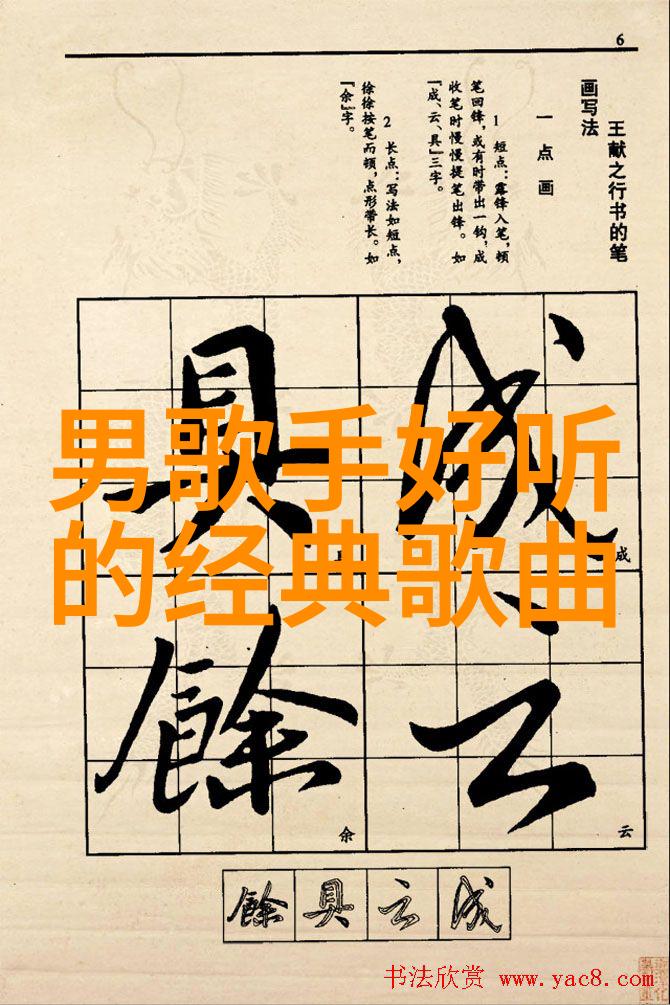 6
王献之行书的笔
画写法
一点画
1 短点：露锋入笔，顿
笔回锋，或有时带出一钩，成
收笔时慢慢提笔出锋。如
“成、云、具”三字。
2 长点：写法如短点，
徐徐按笔而顿，点形带长。如
“余”字。
男歌手好听
的经典歌曲
成
具
成
云
餘
云
余
餘 具 云 成
书法欣赏 www.yac8.com